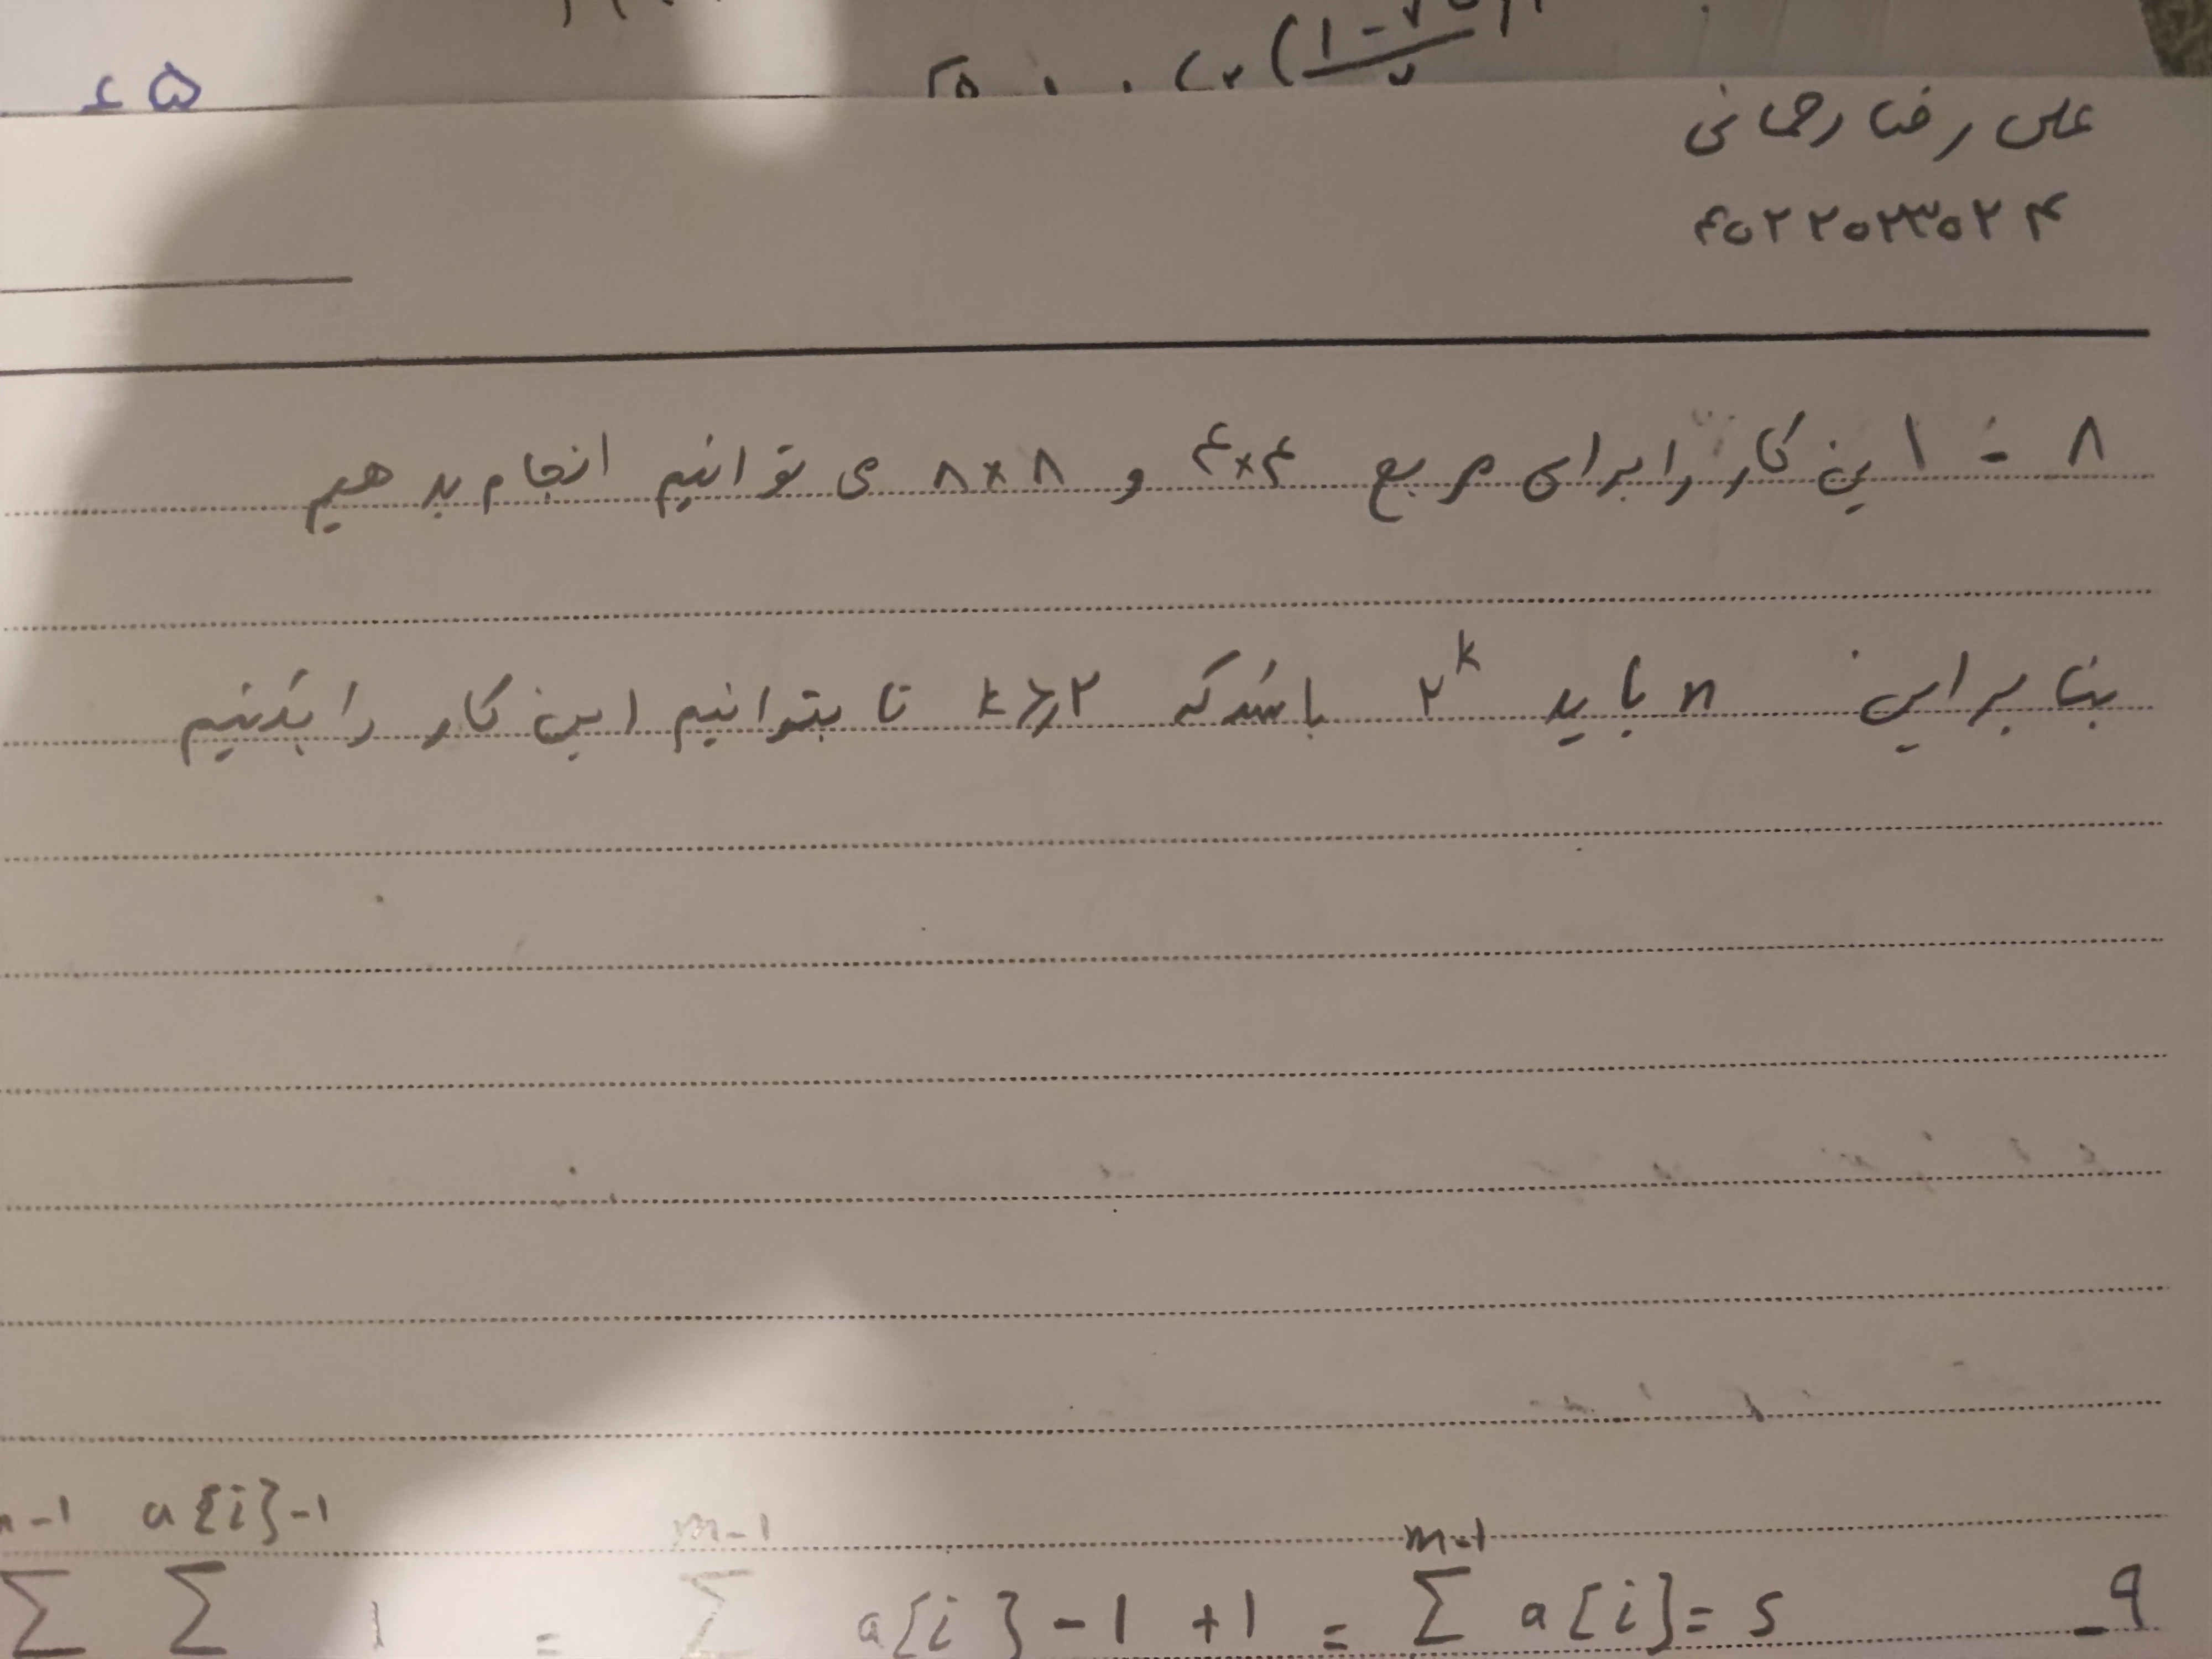 ۴۵
(1-√
علی رضا رحمانی
۴۰۲۲۰۲۳۰۲۴
۸ - این کار را برای مربع ۴×۴ و ۸×۸ می توانیم انجام بدهیم
بنابراین n باید ۲^k باشد که k≥۲ تا بتوانیم این کار را بکنیم
n-1 a[i]-1 m-1 m-1
∑ ∑ 1 = ∑ a[i]-1+1 = ∑ a[i]=s _۹